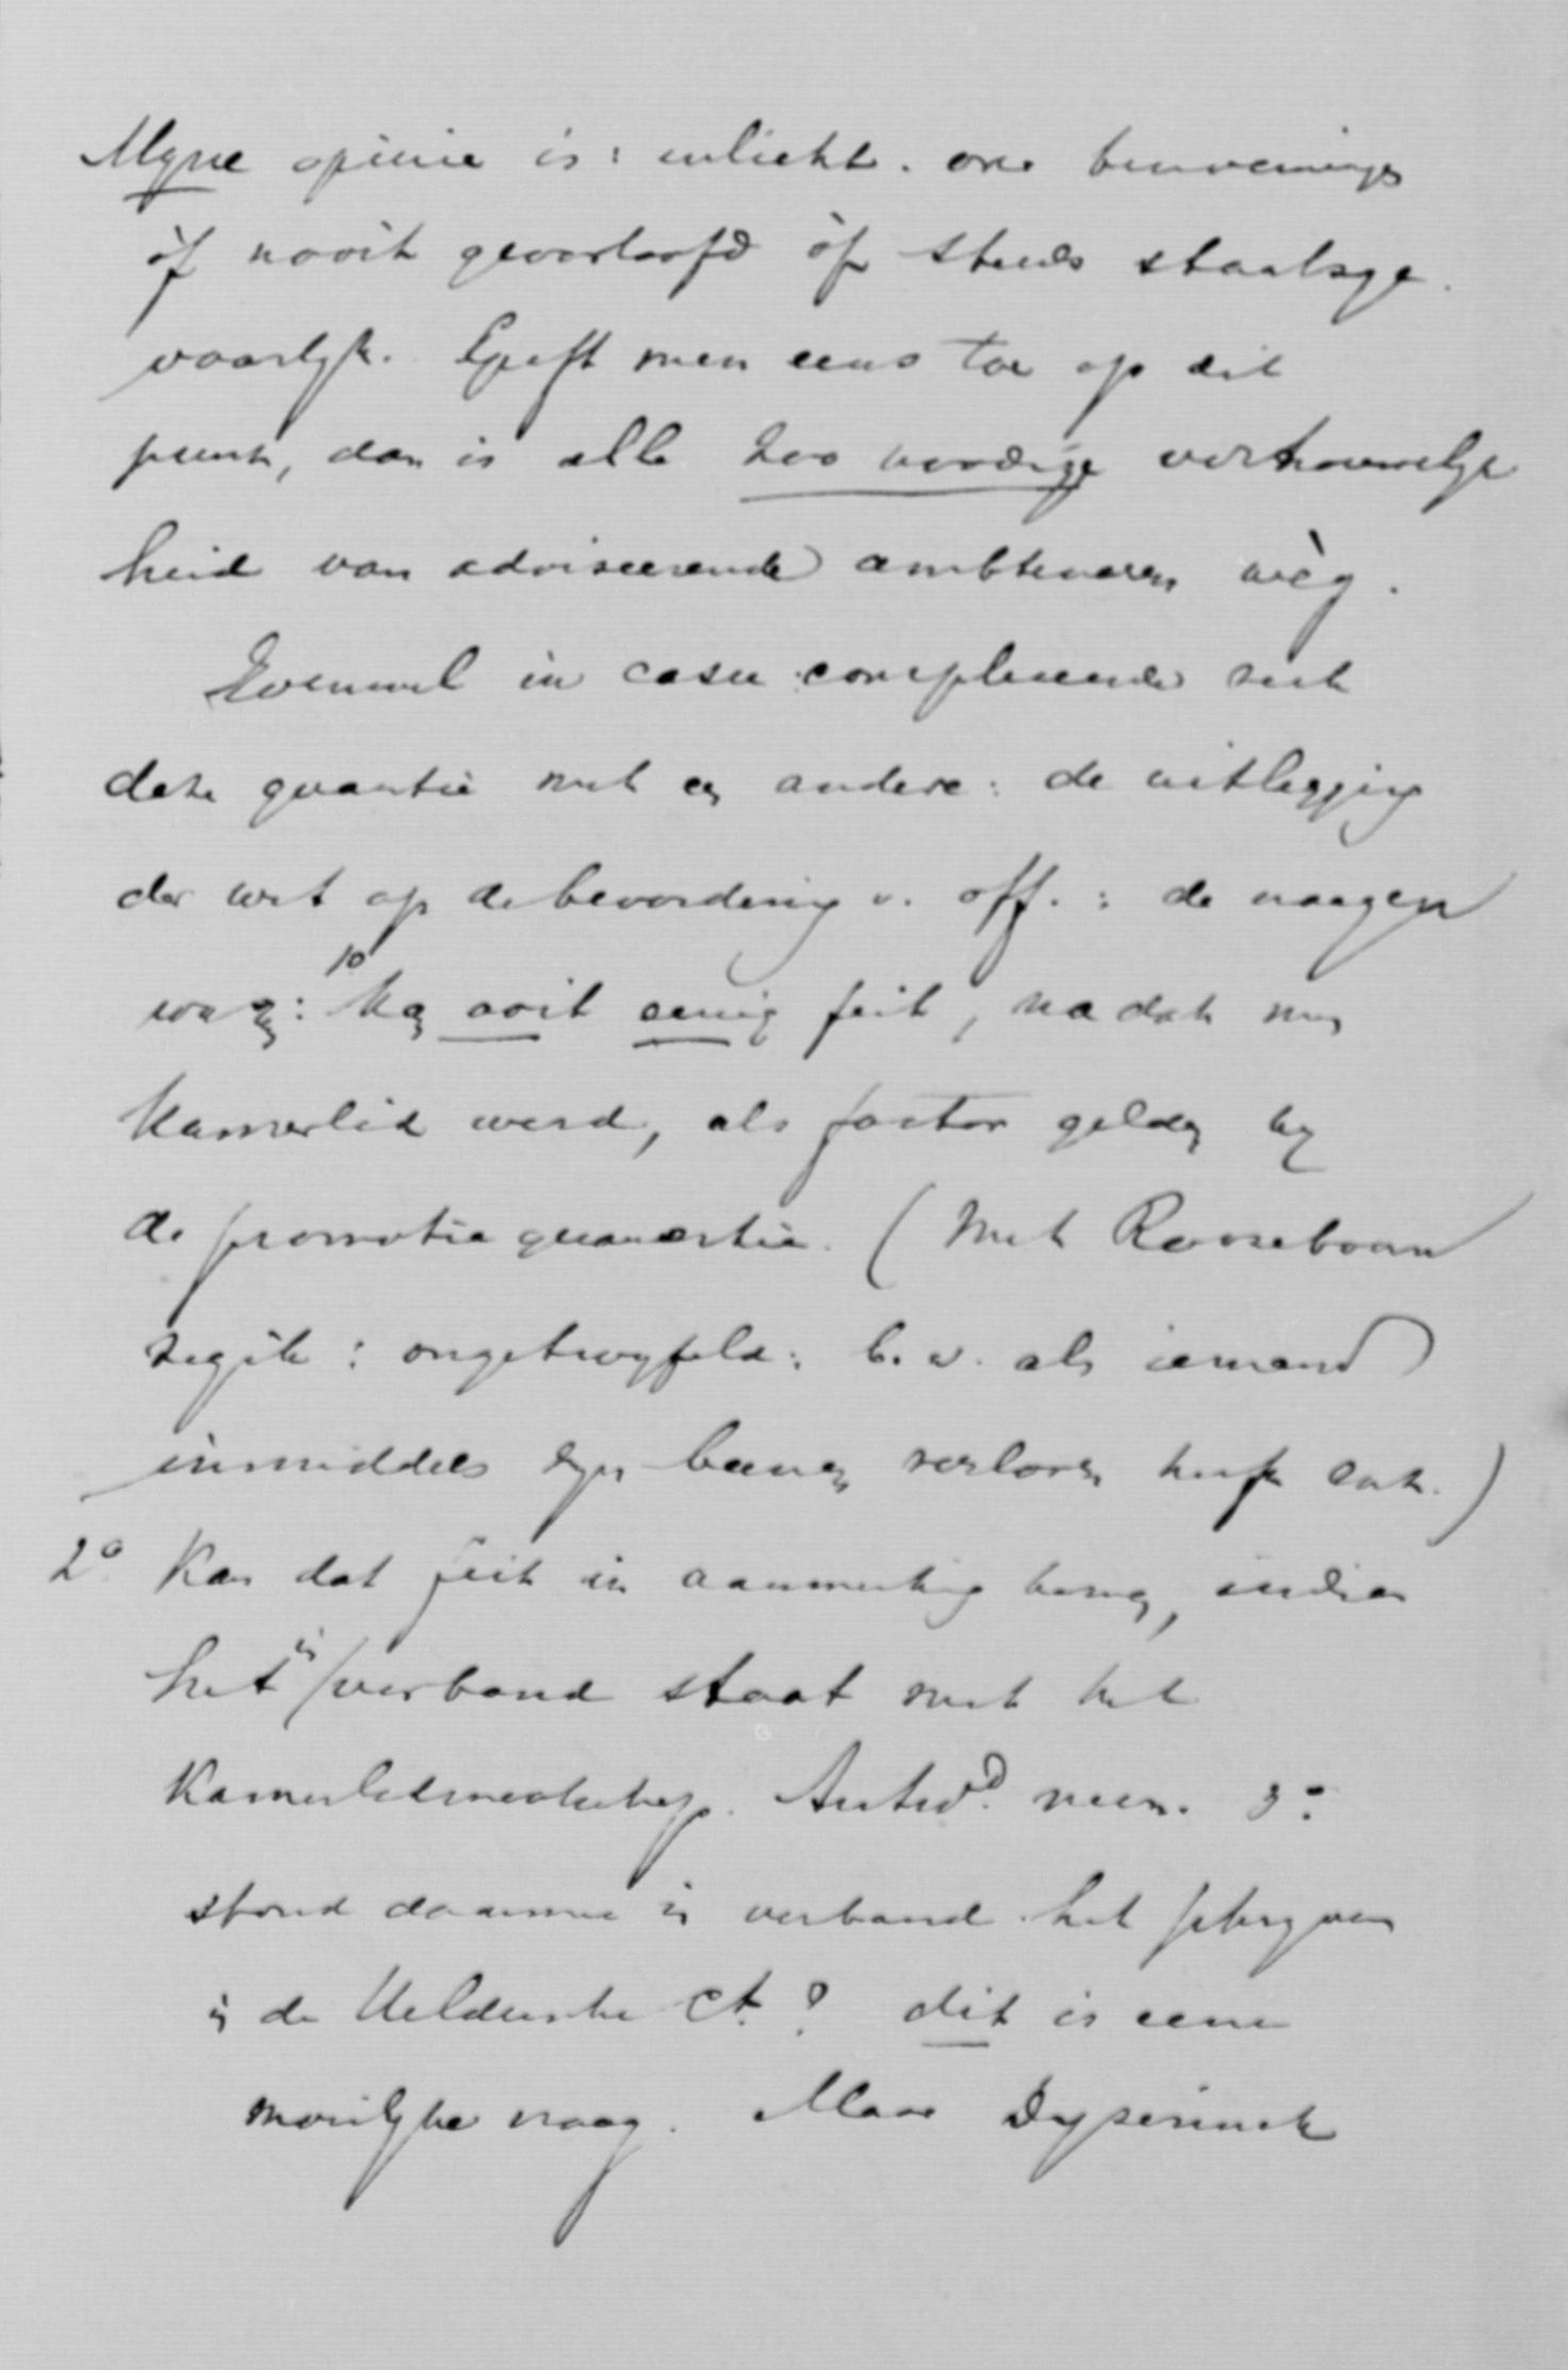 Mijne opinie is: inlicht. over benoemingen
òf nooit geoorloofd òf steeds staatsge-
vaarlijk. Geeft men eens toe op dit
punt, dan is alle zoo noodige vertrouwelijk
heid van adviseerende ambtenaren wèg.
Evenwel in casu compliceerde zich
deze quaestie met een andere: de uitlegging
der wet op de bevordering v. off.: de vragen
war͞en: 1º Kan ooit eenig feit, nadat men
Kamerlid werd, als factor gelden bij
de promotie quaestie. (Met Rooseboom
zeg ik: ongetwijfeld: b.v. als iemand
inmiddels zijn beenen verloren heeft enz.)
2º Kan dat feit in aanmerking komen, indien
het in verband staat met het
Kamerlidmaatschap. Antwd. neen. 3º
stond daarmee in verband het schrijven
in de Heldersche Ct.? dit is eene
moeilijke vraag. Maar Dyserinck